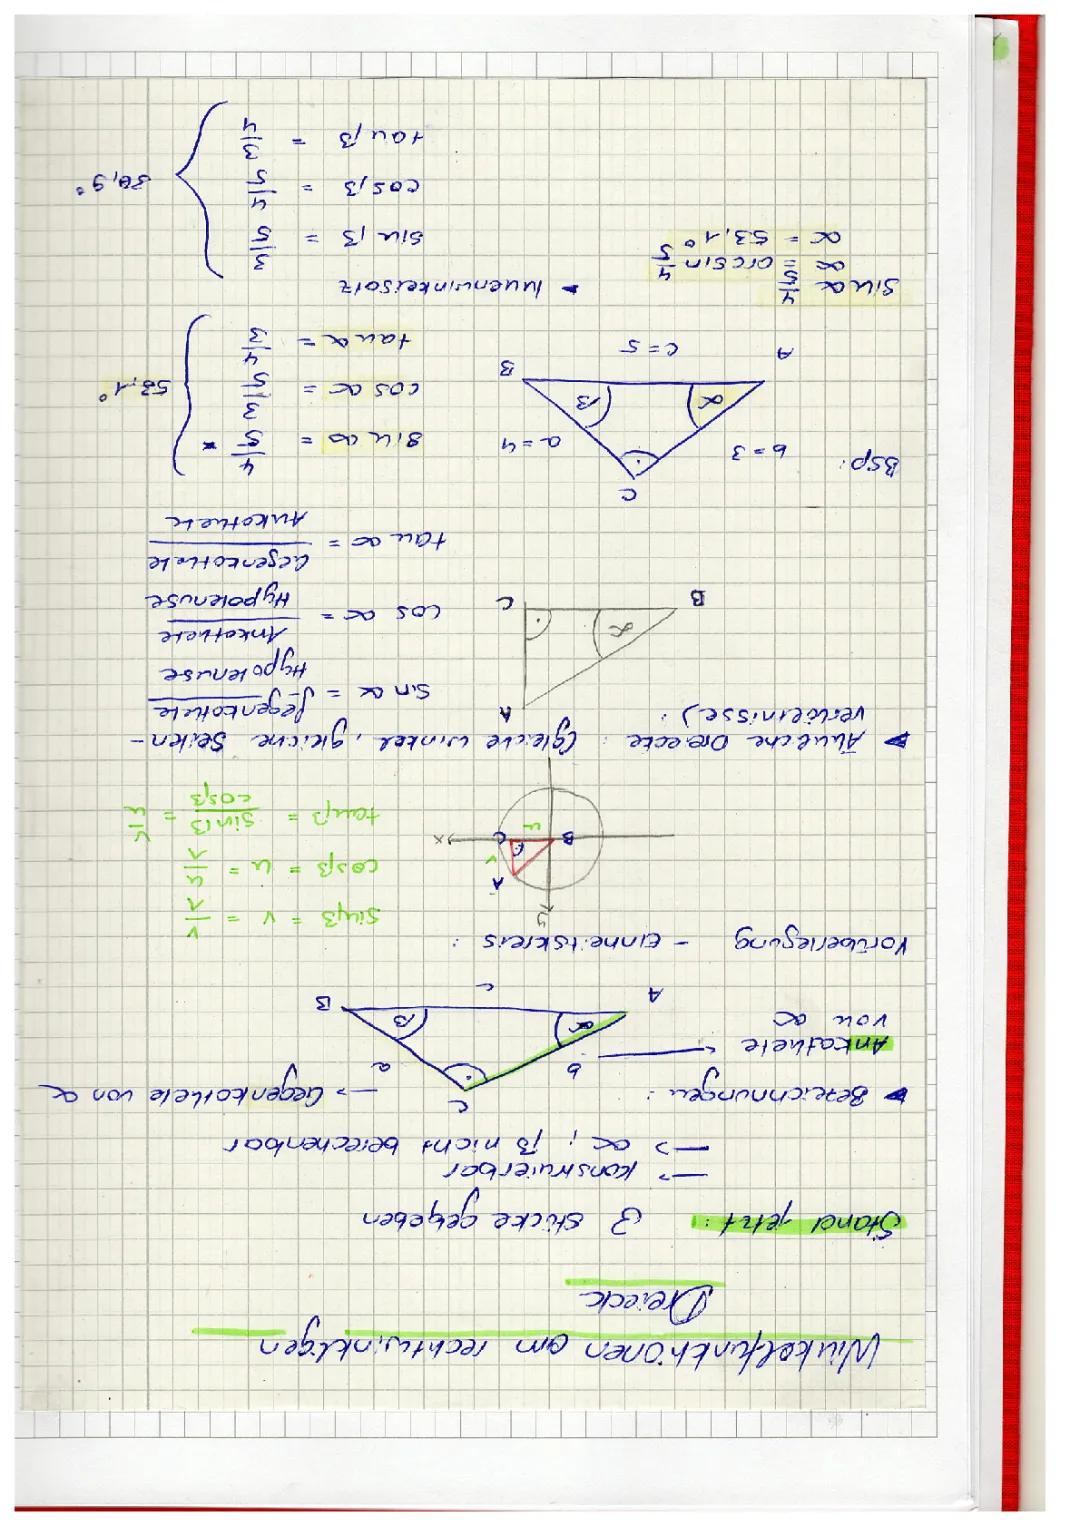 Winkelfunktionen am rechtwinkligen
Dreieck
Stand jetzt: 3 Stücke gegeben
-> konstruierbar
-> α ; β nicht berechenbar
▶ Bezeichnungen:
C
b
a
-> Gegenkathete von α
Ankathete
von α
α
β
A
c
B
Vorüberlegung - Einheitskreis :
y
x
A
B
C
u
v
sinβ = v = v/1
cosβ = u = u/1
tanβ = sinβ/cosβ = v/u
▶ Ähnliche Dreiecke : (gleiche Winkel, gleiche Seiten-
verhältnisse) :
A
B
C
α
sin α = Gegenkathete/Hypotenuse
cos α = Ankathete/Hypotenuse
tan α = Gegenkathete/Ankathete
Bsp:
C
b = 3
a = 4
α
β
A
c = 5
B
sin α = 4/5 *
cos α = 3/5
tan α = 4/3
53,1°
sin α 4/5
α = arcsin 4/5
α = 53,1°
• Innenwinkelsatz
sin β = 3/5
cos β = 4/5
tan β = 3/4
36,9°